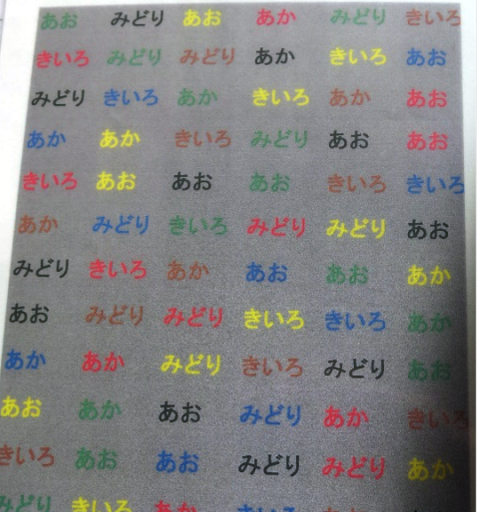 あお みどり あお あか みどり きいろ
きいろ みどり みどり あか きいろ あお
みどり きいろ あか きいろ あか あお
あか あか きいろ みどり あお あお
きいろ あお あお あお きいろ きいろ
あか みどり きいろ みどり みどり あお
みどり きいろ あか あお あお あか
あお みどり みどり きいろ きいろ あか
あか あか みどり きいろ みどり あお
あお あか あお みどり あか きいろ
きいろ あお あお みどり みどり あか
みどり きいろ あか